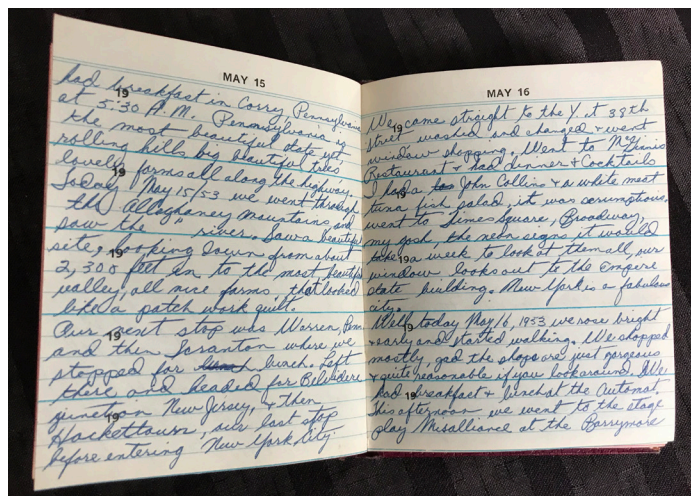 MAY 15
19
had breakfast in Corry, Pennsylvania
at 5:30 A.M. Pennsylvania is
the most beautiful state yet,
rolling hills big beautiful trees
19
lovely farms all along the highway.
Today May 15/53 we went through
the Alleghaney Mountains, and
saw the " river. Saw a beautiful
19
site, looking down from about
2,300 feet in to the most beautiful
valley, all nice farms, that looked
like a patch work quilt.
Our next stop was Warren, Penn
19
and then Scranton where we
stopped for lunch. Left
there and headed for Belvidere
junction New Jersey, & then
19
Hackettown, our last stop
before entering New York City
MAY 16
We came straight to the Y. at 38th
19
street washed and changed & went
window shopping. Went to
Restaurant & had dinner & Cocktails
I had a John Collins & a white meat
19
tuna fish salad, it was scrumptious.
went to Times Square, Broadway,
my gosh, the neon signs it would
take a week to look at them all, our
19
window looks out to the Empere
state building. New York is a fabulous
city.
19
Well today May 16, 1953 we rose bright
& early and started walking. We shopped
mostly, gad the shops are just gorgeous
& quite reasonable if you look around. We
19
had breakfast & lunch at the Automat,
this afternoon we went to the stage
play Misalliance at the Barrymore